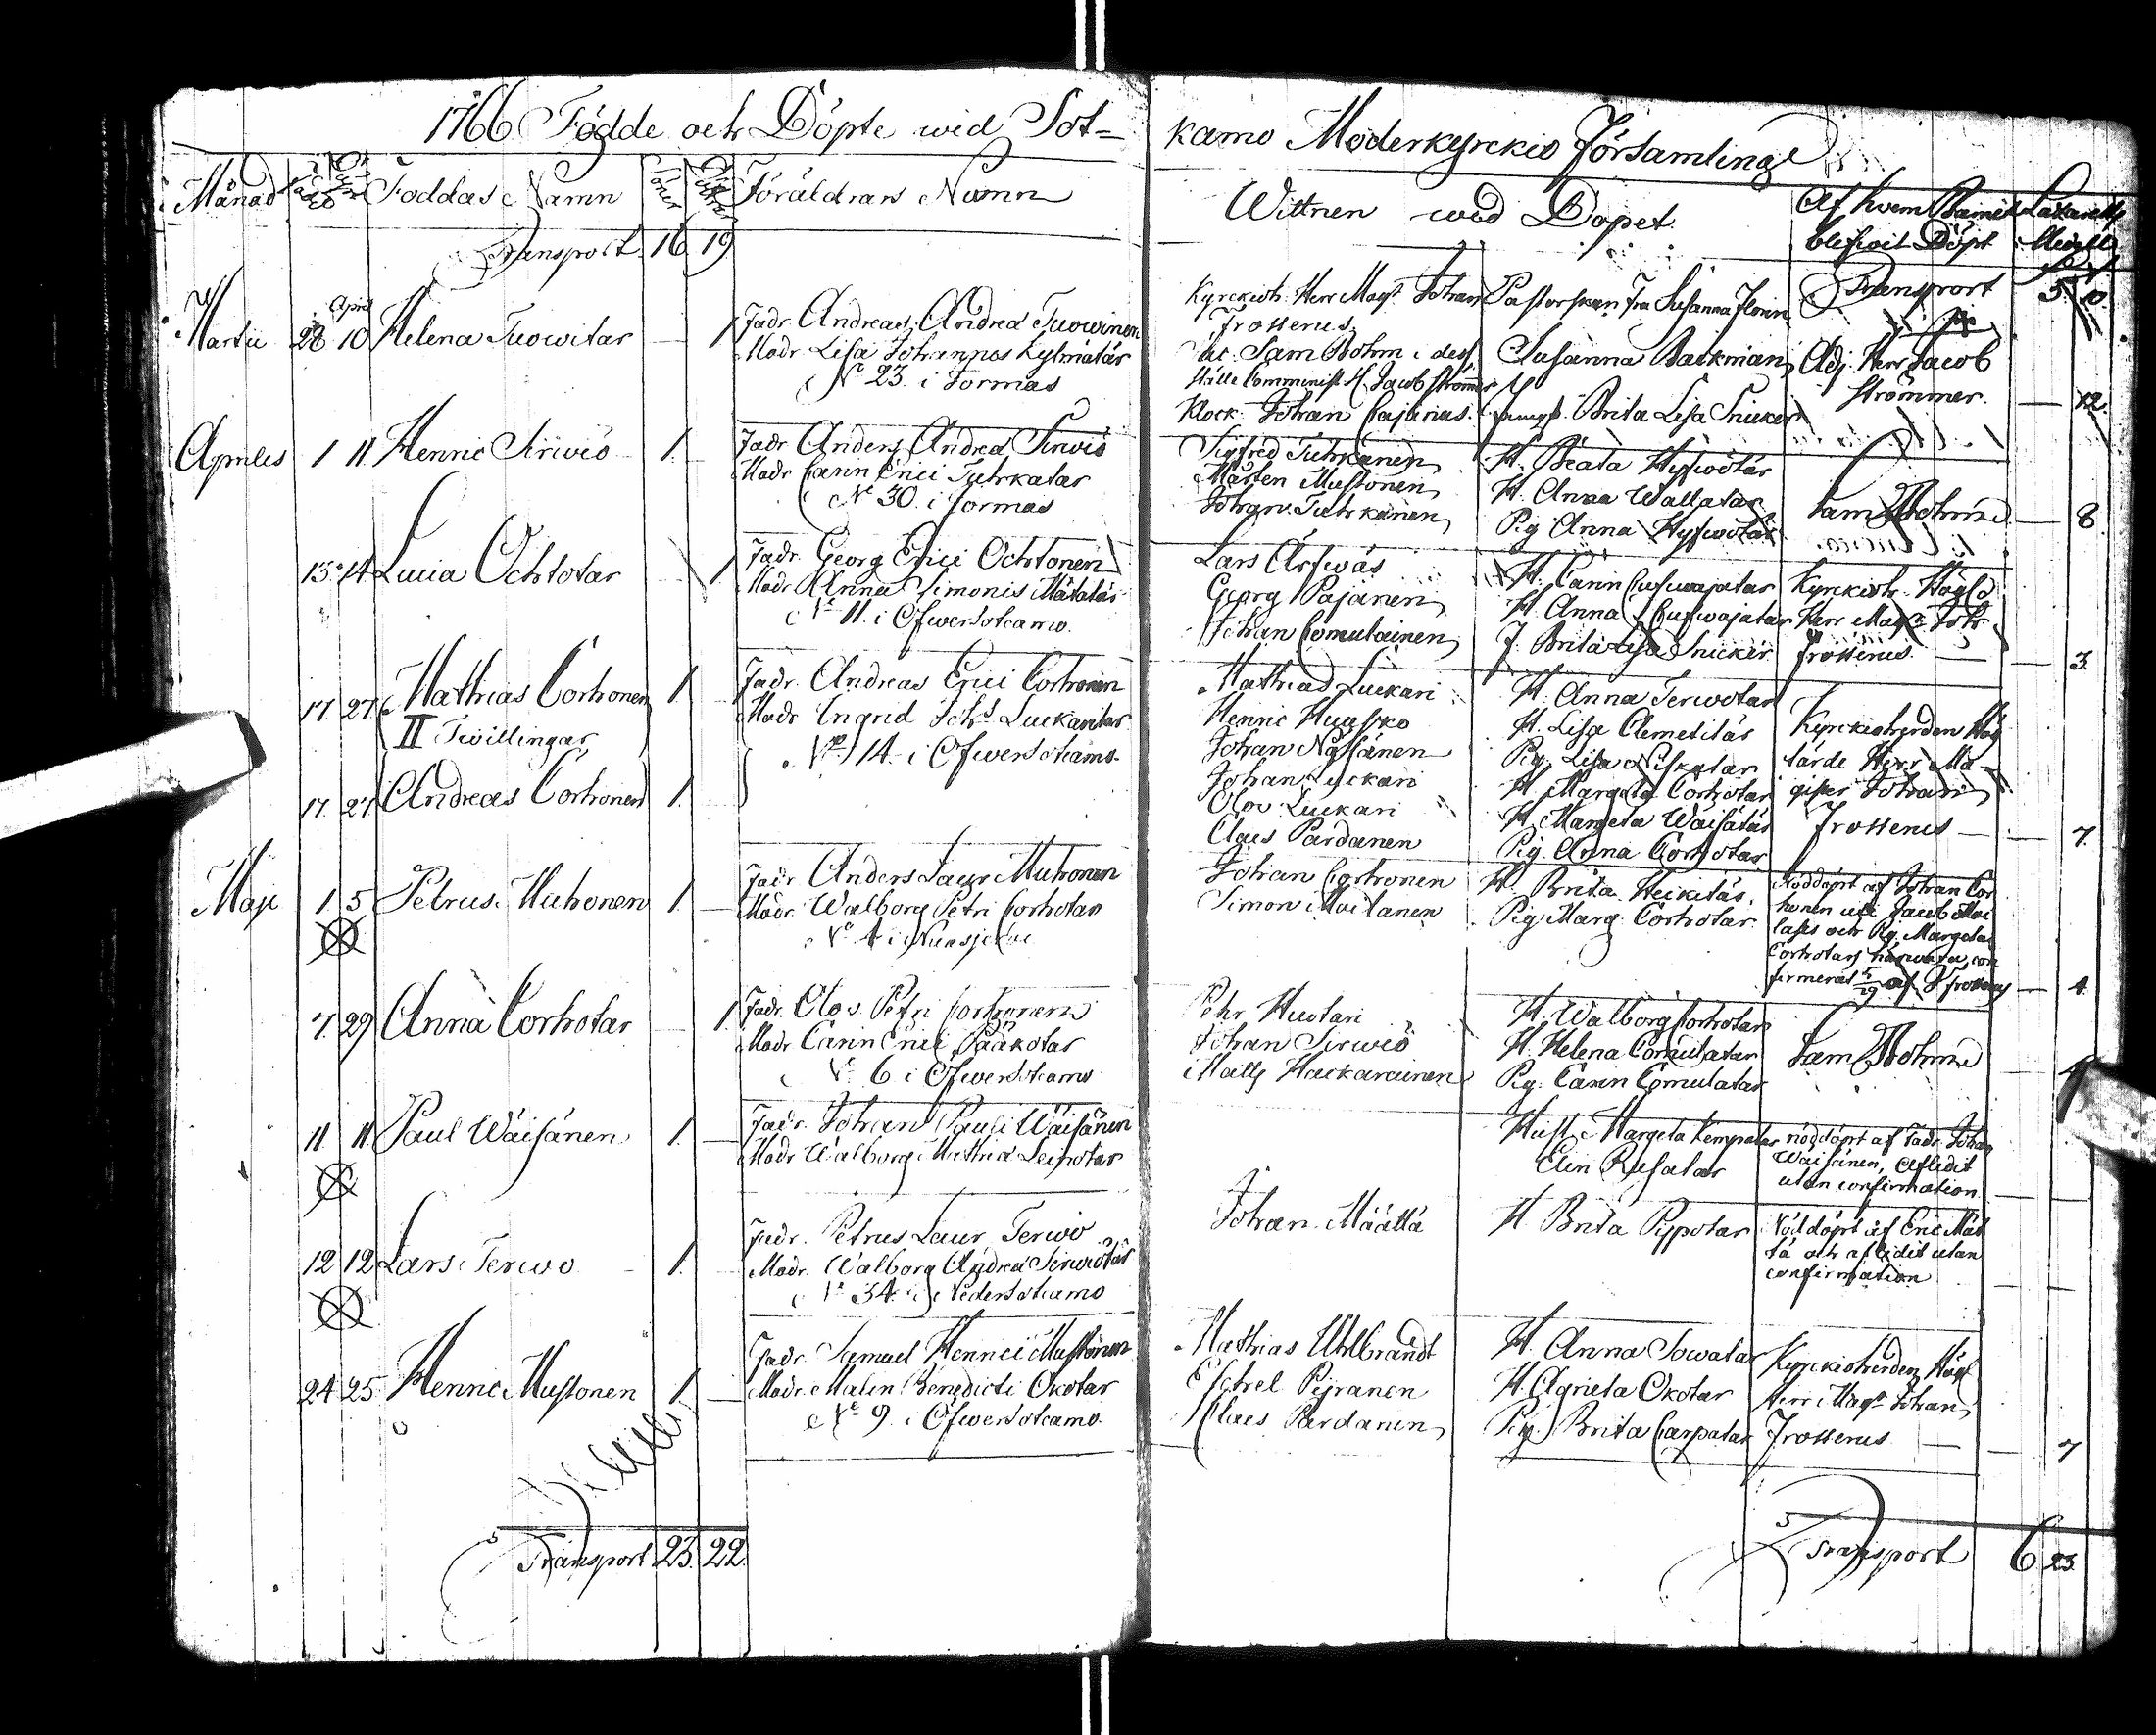 1766 Födde och Döpte wid Sot-
kamo Moderkyrckio Församlinge
Månad Föddas Namn Söner Döttrar Föräldrars Namn
Wittnen wid Döpet. Af hvem Barnet Lazaretts
blefwit Döpt Medell
Transport 16 19
Transport 5. 10
April
Martii 28 10 Helena Tuowitar — 1
Fadr. Andreas Andreæ Tuowinen
Modr. Lisa Johannis Kylmätär
N° 23. i Sormas
Kyrckioh. Herr Mag. Johan
Frosterus.
Sam Bohm i dess
ställe Comminist H. Jacob Strömmer
Klock. Johan Cajanus.
Pastorskan Fru Susanna Florin
Susanna Backman
Jungf. Brita Lisa Snicker
Adj. Herr Jacob
Strömmer. — 12.
Apriles 1 11 Henric Sirwiö 1. —
Fadr Anders Andreæ Sirwiö
Modr Carin Erici Tuhkatar
N° 30. i Sormas
Sigfred Tuhkanen
Mårten Mustonen
Johan Tuhkanen
H. Beata Hyfwötär
H. Anna Wallatar
Pig Anna Hyfwötär
Sam Bohm — 8.
13. 14 Lucia Ochtotar — 1
Fadr. Georg Erici Ochtonen
Modr Anna Simonis Määtätär
N° 11. i Öfwersotcamo.
Lars Arfwäs
Georg Pajanen
Johan Comulainen
H. Carin Cufwajatar
H. Anna Cufwajatar
J. Brita Lisa Snicker
Kyrckioh. Högl.
Herr Mag. Joh.
Frosterus — 3.
17. 27 Mathias Corhonen 1
II Twillingar
17. 27 Andreas Corhonen 1.
Fadr. Andreas Erici Corhonen
Modr Ingrid Joh. Luckaritar
N° 14. i Öfwersotcamo.
Mathias Luckari
Henric Huusko
Johan Nyssänen
Johan Luckari
Olov Luckari
Claes Pardanen
H. Anna Terwotar
H. Lisa Clemetitär
Pig. Lisa Piskatar
H. Margeta Corhotar
H. Margeta Wäisätär
Pig. Anna Corhotar
Kyrckioherden Hög
lärde Herr Ma-
gister Johan
Frosterus — 7.
Maji 1 5 Petrus Muhonen 1. —
Fadr. Anders Laur. Muhonen
Modr. Walborg Petri Corhotar
N° 4 i Nuasjerfwi
Johan Corhonen
Simon Moilanen
H. Brita Heikitär.
Pig Marg. Corhotar.
Nöddöpt af Johan Cor
honen uti Jacob Moi
lases och Pig. Margeta
Corhotars närwaru, con
firmerat 5/29 af J. Frosterus — 4.
7. 29 Anna Corhotar — 1.
Fadr. Olov Petri Corhonen
Modr Carin Erici Pääkotar
N° 6 i Öfwersotcamo
Pehr Huotari
Johan Sirwiö
Matts Hackarainen
H. Walborg Corhotar
H. Helena Comulatar
Pig. Carin Comulatar
Sam Bohm —
11 11 Paul Wäisänen 1. —
Fadr. Johan Pauli Wäisänen
Modr Walborg Mathiæ Leinotar
Hust. Margeta Kempatar
Elin Rusatar
nöddöpt af Fadr. Johan
Wäisänen, Aflidit
utan confirmation
12 12 Lars Terwo — 1.
Fadr. Petrus Laur. Terwo
Modr. Walborg Andreæ Sirwiötär
N° 34. i Nedersotcamo
Johan Määttä
H. Brita Pippotar
Nöddöpt af Eric Mät
tä och aflidit utan
confirmation
24 25 Henric Mustonen 1. —
Fadr. Samuel Henrici Mustonen
Modr. Malin Benedicti Okotar
N° 9. i Öfwersotcamo.
Mathias Uhlbrandt
Eschel Pyranen
Claes Pardanen
H. Anna Sowatar
H. Agneta Okotar
Pig. Brita Carpatar
Kyrckioherden Högl
Herr Mag. Johan
Frosterus — 7
Transport 23. 22.
Transport 6 23.